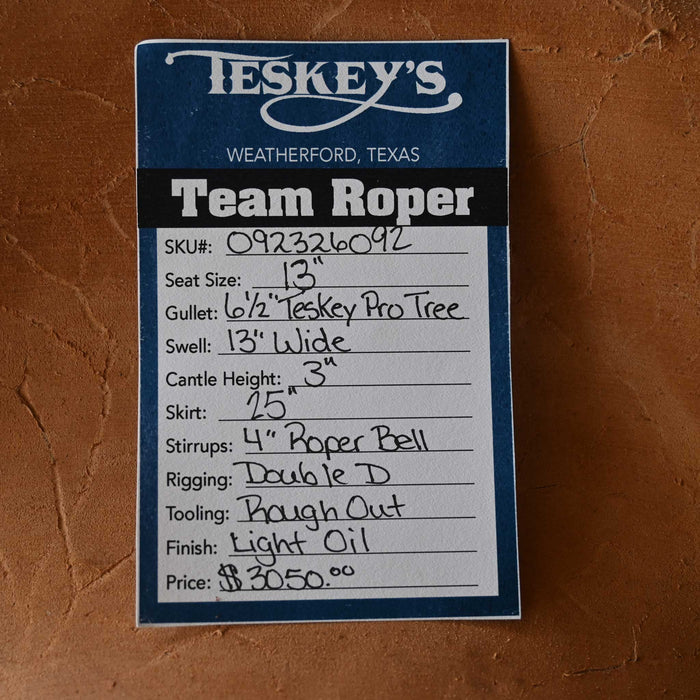 TESKEY'S
WEATHERFORD, TEXAS
Team Roper
SKU#: 092326092
Seat Size: 13"
Gullet: 6 1/2" Teskey Pro Tree
Swell: 13" Wide
Cantle Height: 3"
Skirt: 25"
Stirrups: 4" Roper Bell
Rigging: Double D
Tooling: Rough Out
Finish: Light Oil
Price: $3050.00